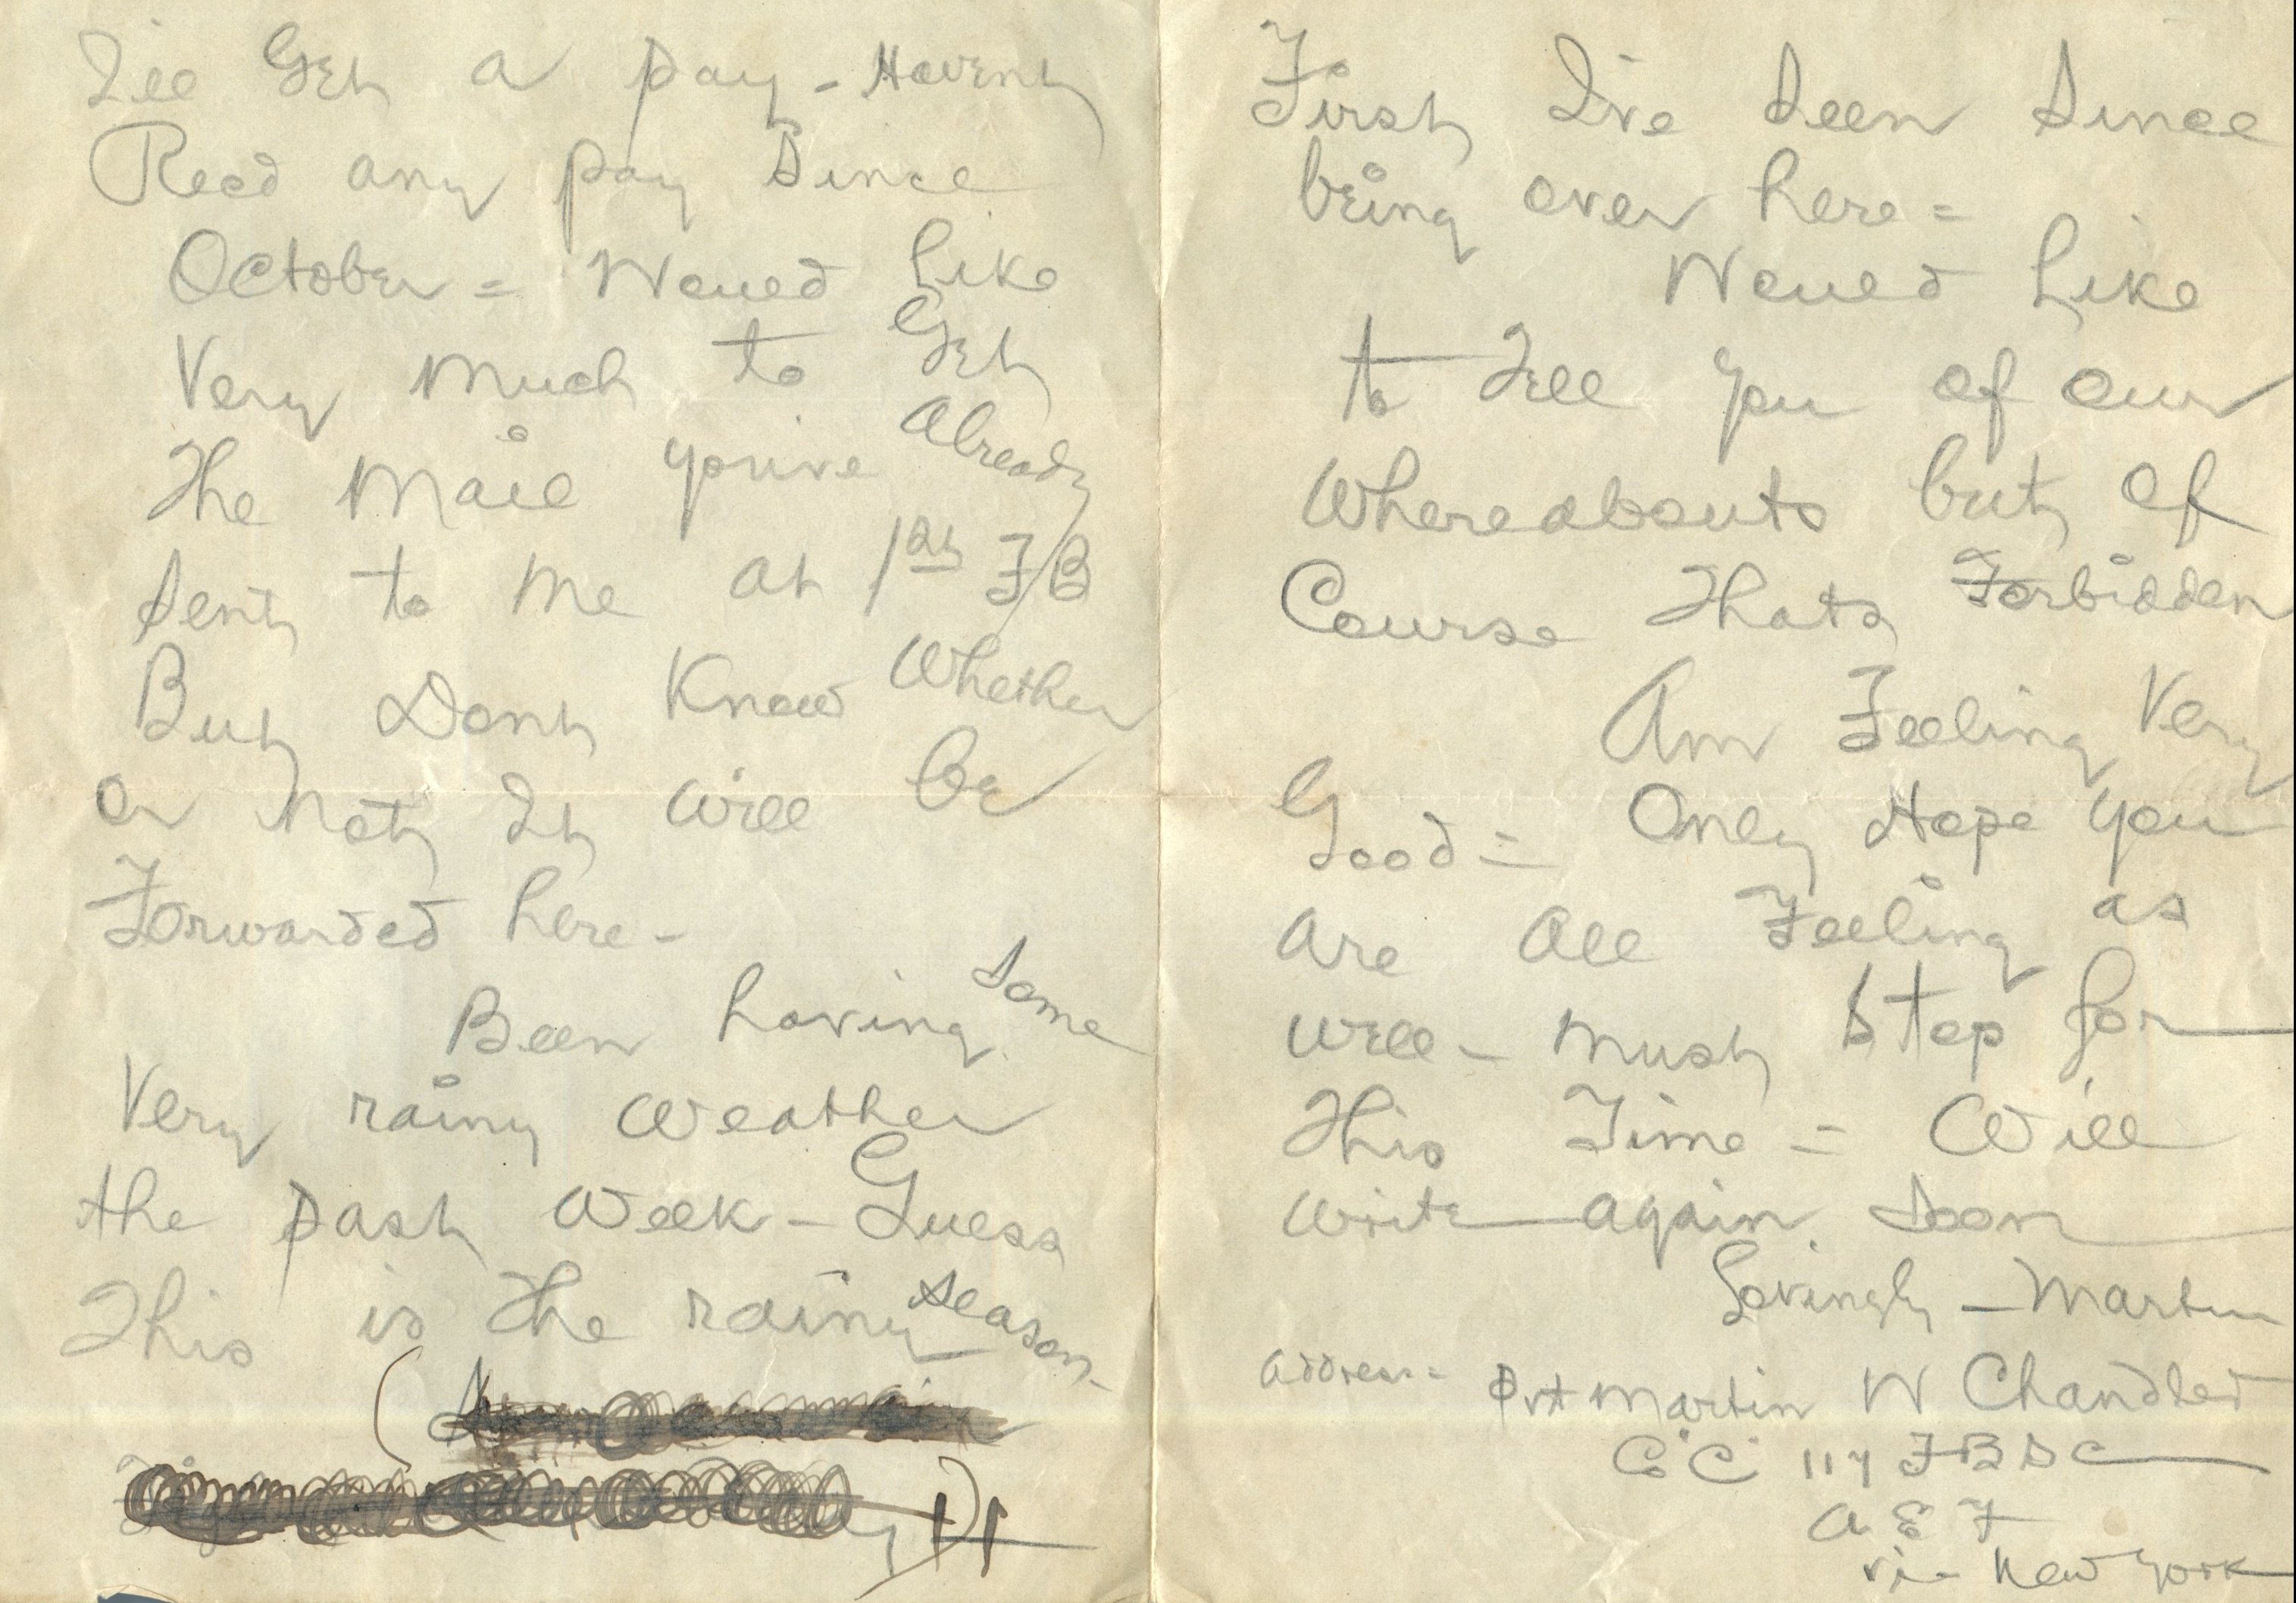 I'll Get a pay - Havent
Recd any pay Since
October = Would Like
Very Much to Get
The Mail you've Already
Sent to Me at 1st F B
But Dont Know Whether
or Not It Will Be
Forwarded here -
Been having Some
Very rainy Weather
the past Week - Guess
This is the rainy season -
First I've Seen Since
being over here =
Would Like
to Tell you of our
Whereabouts but of
Course Thats Forbidden
Am Feeling Very
Good = Only Hope you
Are All Feeling as
well - Must Stop for
This Time = Will
write again Soon
Lovingly - Martin
Address = Pvt Martin W Chandler
Co C 117 F B S C
A E F
via New York